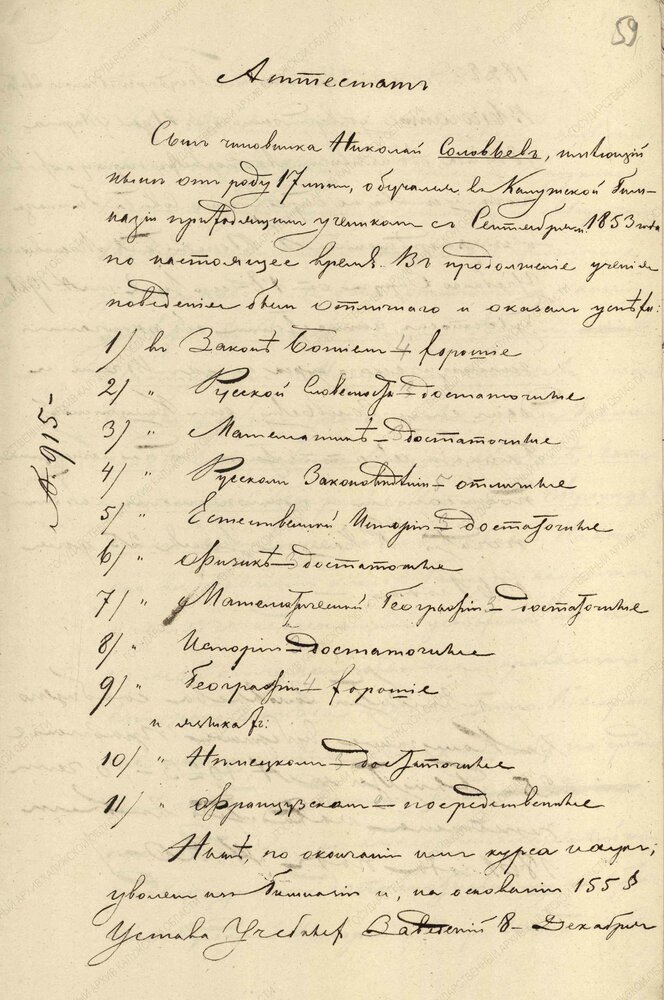 59
Аттестатъ
Сынъ чиновника Николай Соловьевъ, имѣющій
нынѣ отъ роду 17 лѣтъ, обучался въ Калужской Гим-
назіи приходящимъ ученикомъ съ Сентября 1853 года
по настоящее время. Въ продолженіе ученія
поведенія былъ отличнаго и оказалъ успѣхи:
1) въ Законѣ Божіемъ - 4 хорошіе
2) " Русской Словесности - достаточные
3) " Математикѣ - 3 достаточные
№ 915-
4) " Русскомъ Законовѣдѣніи - 5 отличные
5) " Естественной Исторіи - 3 достаточные
6) " Физикѣ - 3 достаточные
7) " Математической Географіи - 3 достаточные
8) " Исторіи - достаточные
9) " Географіи - 4 хорошіе
и языкахъ:
10) " Нѣмецкомъ - достаточные
11) " Французскомъ - посредственные
Нынѣ, по окончаніи имъ курса наукъ,
уволенъ изъ Гимназіи и, на основаніи 155 §
Устава Учебныхъ Заведеній 8- Декабря